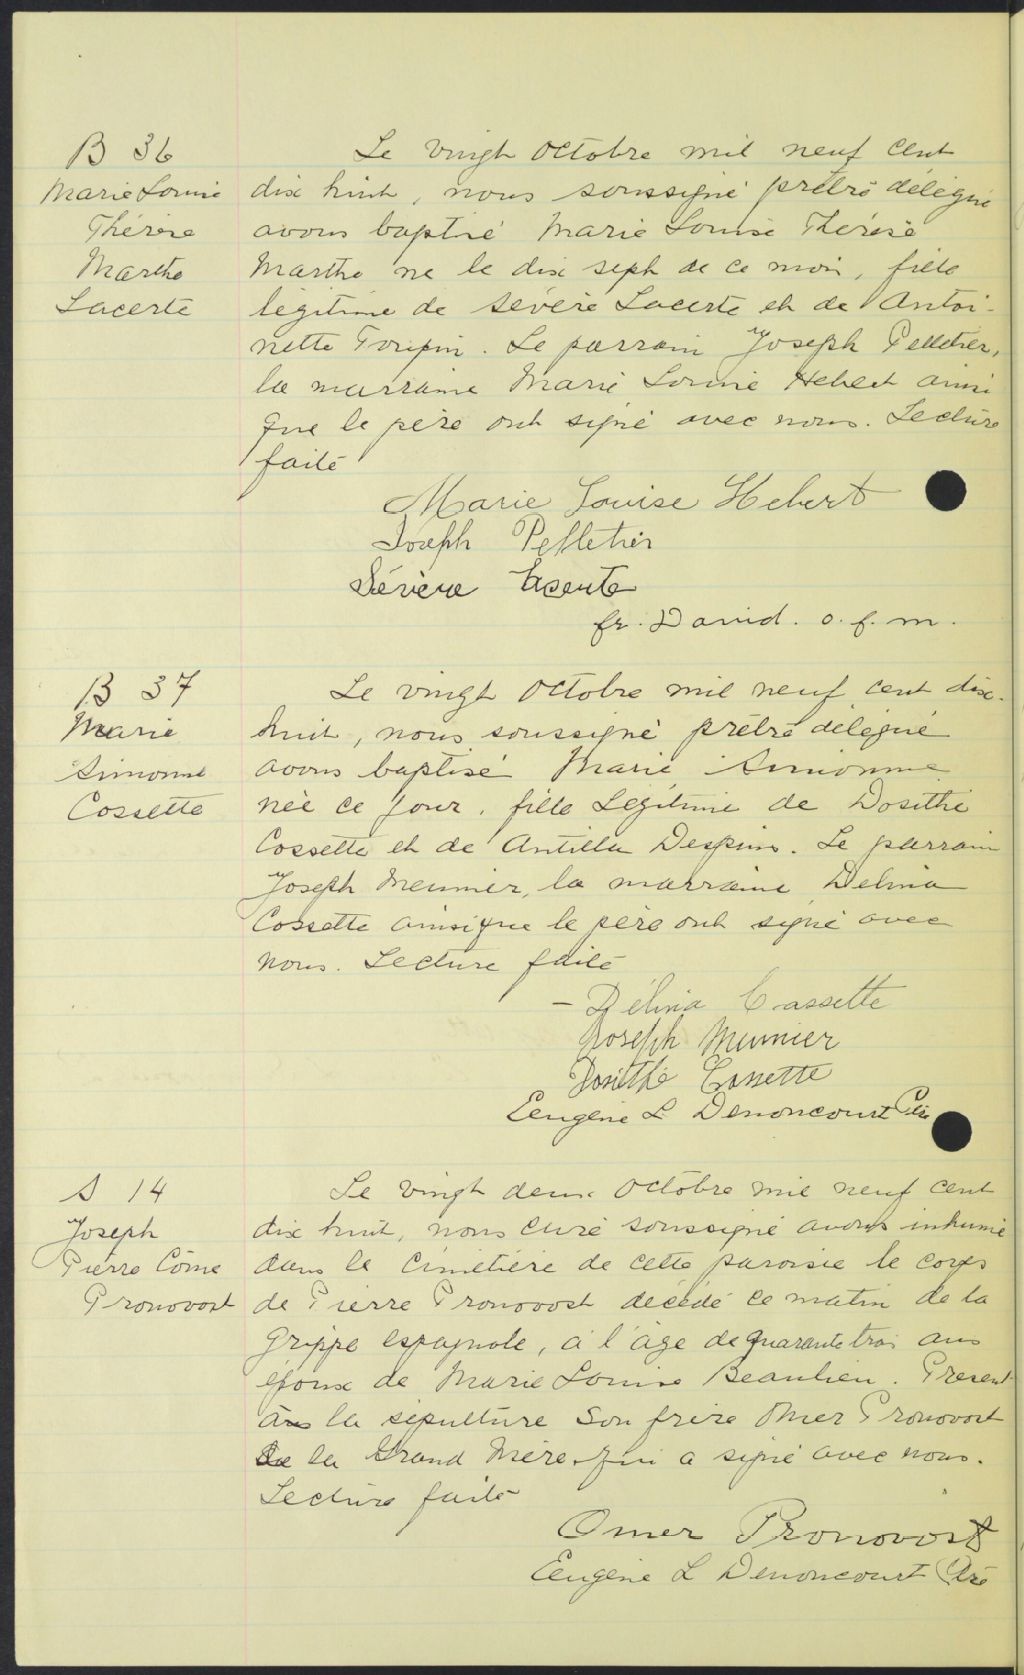 B 36
Marie Louise
Thérèse
Marthe
Lacerte
Le vingt octobre mil neuf cent
dix huit, nous soussigné prêtre délégué
avons baptisé Marie Louise Thérèse
Marthe né le dix sept de ce mois, fille
légitime de Sévère Lacerte et de Antoi-
nette Turpin. Le parrain Joseph Pelletier,
la marraine Marie Louise Hebert ainsi
que le père ont signé avec nous. Lecture
faite
Marie Louise Hebert
Joseph Pelletier
Sévère Lacerte
fr. David. o. f. m.
B 37
Marie
Simonne
Cossette
Le vingt octobre mil neuf cent dix-
huit, nous soussigné prêtre délégué
avons baptisé Marie Simonne
née ce jour, fille légitime de Dosithé
Cossette et de Antilla Despins. Le parrain
Joseph Meunier, la marraine Delina
Cossette ainsi que le père ont signé avec
nous. Lecture faite
- Délina Cossette
Joseph Meunier
Dosithé Cossette
Eugène L Denoncourt Ptre
S 14
Joseph
Pierre Côme
Pronovost
Le vingt deux octobre mil neuf cent
dix huit, nous curé soussigné avons inhumé
dans le cimetière de cette paroisse le corps
de Pierre Pronovost décédé ce matin de la
grippe espagnole, à l'âge de quarante trois ans
époux de Marie Louise Beaulieu. Present
à la sépulture son frère Omer Pronovost
de la Grand Mère qui a signé avec nous.
Lecture faite
Omer Pronovost
Eugène L Denoncourt Ptre